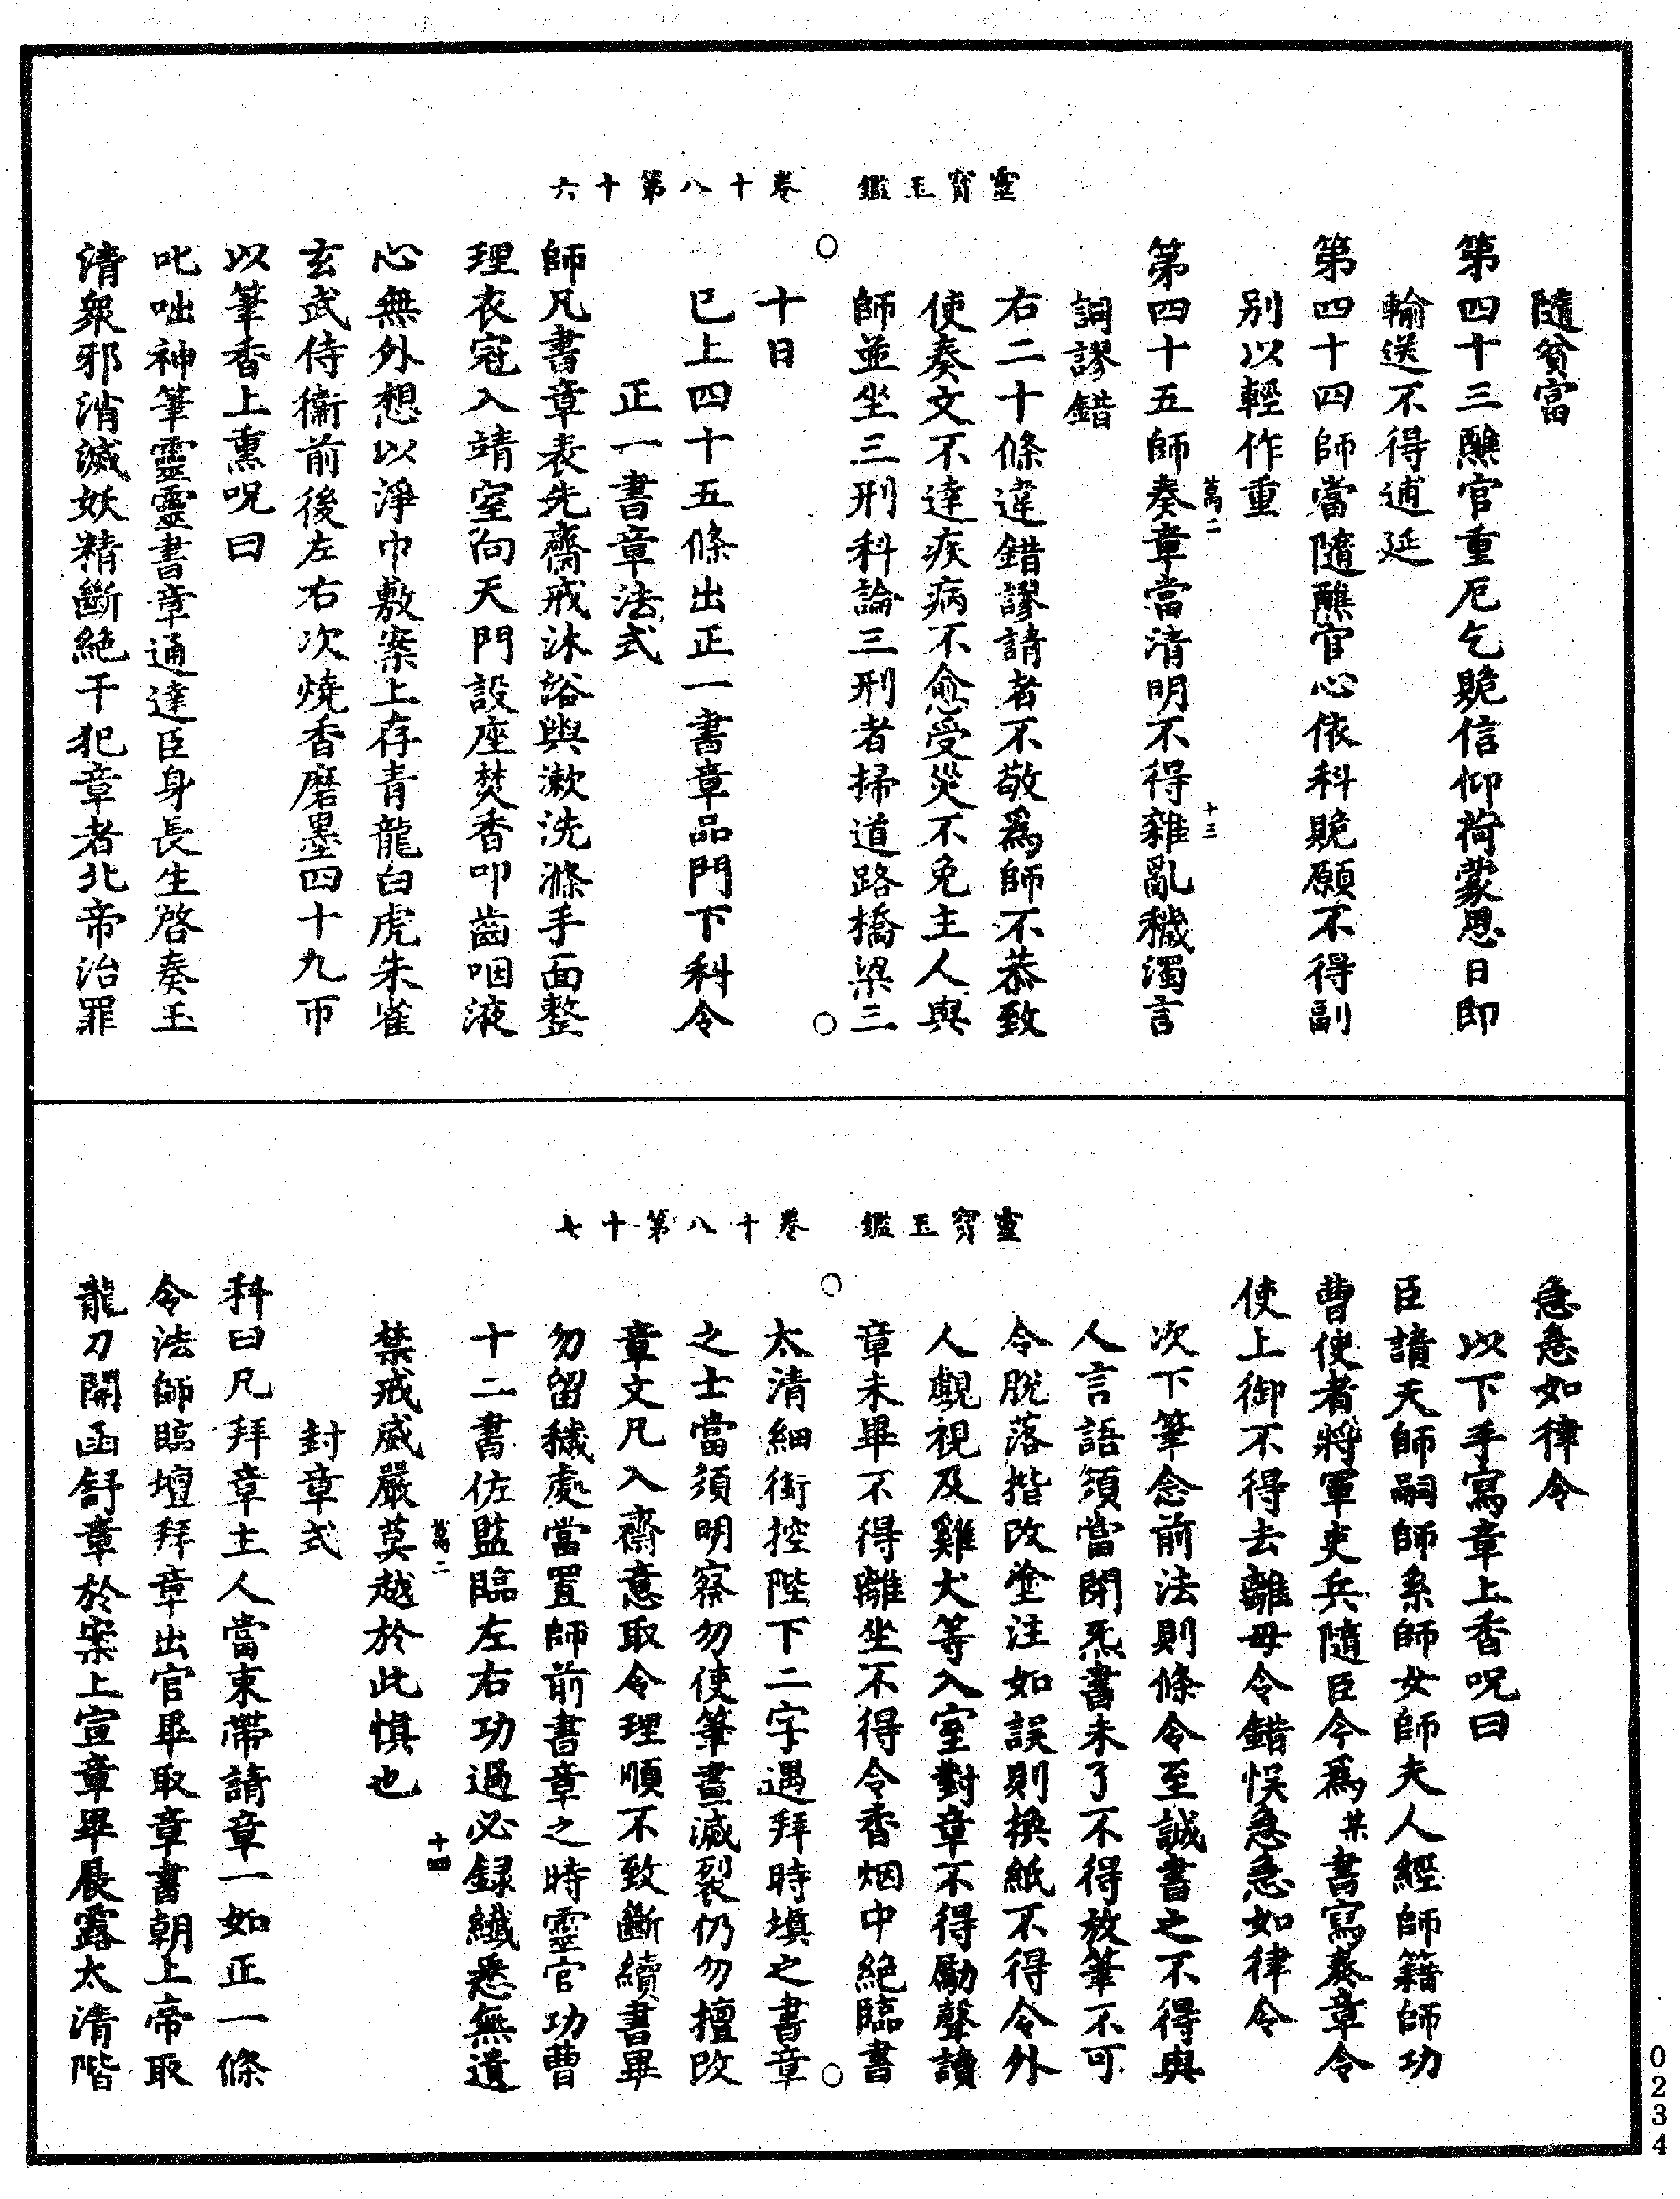 靈寳玉鑑　卷十八第十六
隨貧富
第四十三醮官重厄乞賧信仰荷蒙恩日即
輸送不得逋延
第四十四師當隨醮官心依科賧願不得副
别以輕作重
萬二　十三
第四十五師奏章當清明不得雜亂穢濁言
詞謬錯
右二十條違錯謬請者不敬爲師不恭致
使奏文不達疾病不愈受災不免主人與
師並坐三刑科論三刑者掃道路橋梁三
十日
已上四十五條出正一書章品門下科令
正一書章法式
師凡書章表先齋戒沐浴與漱洗滌手面整
理衣冠入靖室向天門設座焚香叩齒咽液
心無外想以淨巾敷案上存青龍白虎朱雀
玄武侍衞前後左右次燒香磨墨四十九帀
以筆香上熏呪曰
叱咄神筆靈靈書章通達臣身長生啓奏玉
清衆邪消滅妖精斷絶干犯章者北帝治罪
靈寳玉鑑　卷十八第十七
急急如律令
以下手寫章上香呪曰
臣請天師嗣師系師女師夫人經師籍師功
曹使者將軍吏兵隨臣今爲某書寫奏章令
使上御不得去離毋令錯悮急急如律令
次下筆念前法則條令至誠書之不得與
人言語須當閉炁書未了不得放筆不可
令脫落揩改塗注如誤則換紙不得令外
人覩視及雞犬等入室對章不得勵聲讀
章未畢不得離坐不得令香烟中絶臨書
太清細銜控陛下二字遇拜時填之書章
之士當須明察勿使筆畫滅裂仍勿擅改
章文凡入齋意取令理順不致斷續書畢
勿留穢處當置師前書章之時靈官功曹
十二書佐監臨左右功過必録纖悉無遺
萬二　十四
禁戒威嚴莫越於此愼也
封章式
科曰凡拜章主人當束帶請章一如正一條
令法師臨壇拜章出官畢取章書朝上帝取
龍刀開函舒章於案上宣章畢展露太清階
0234